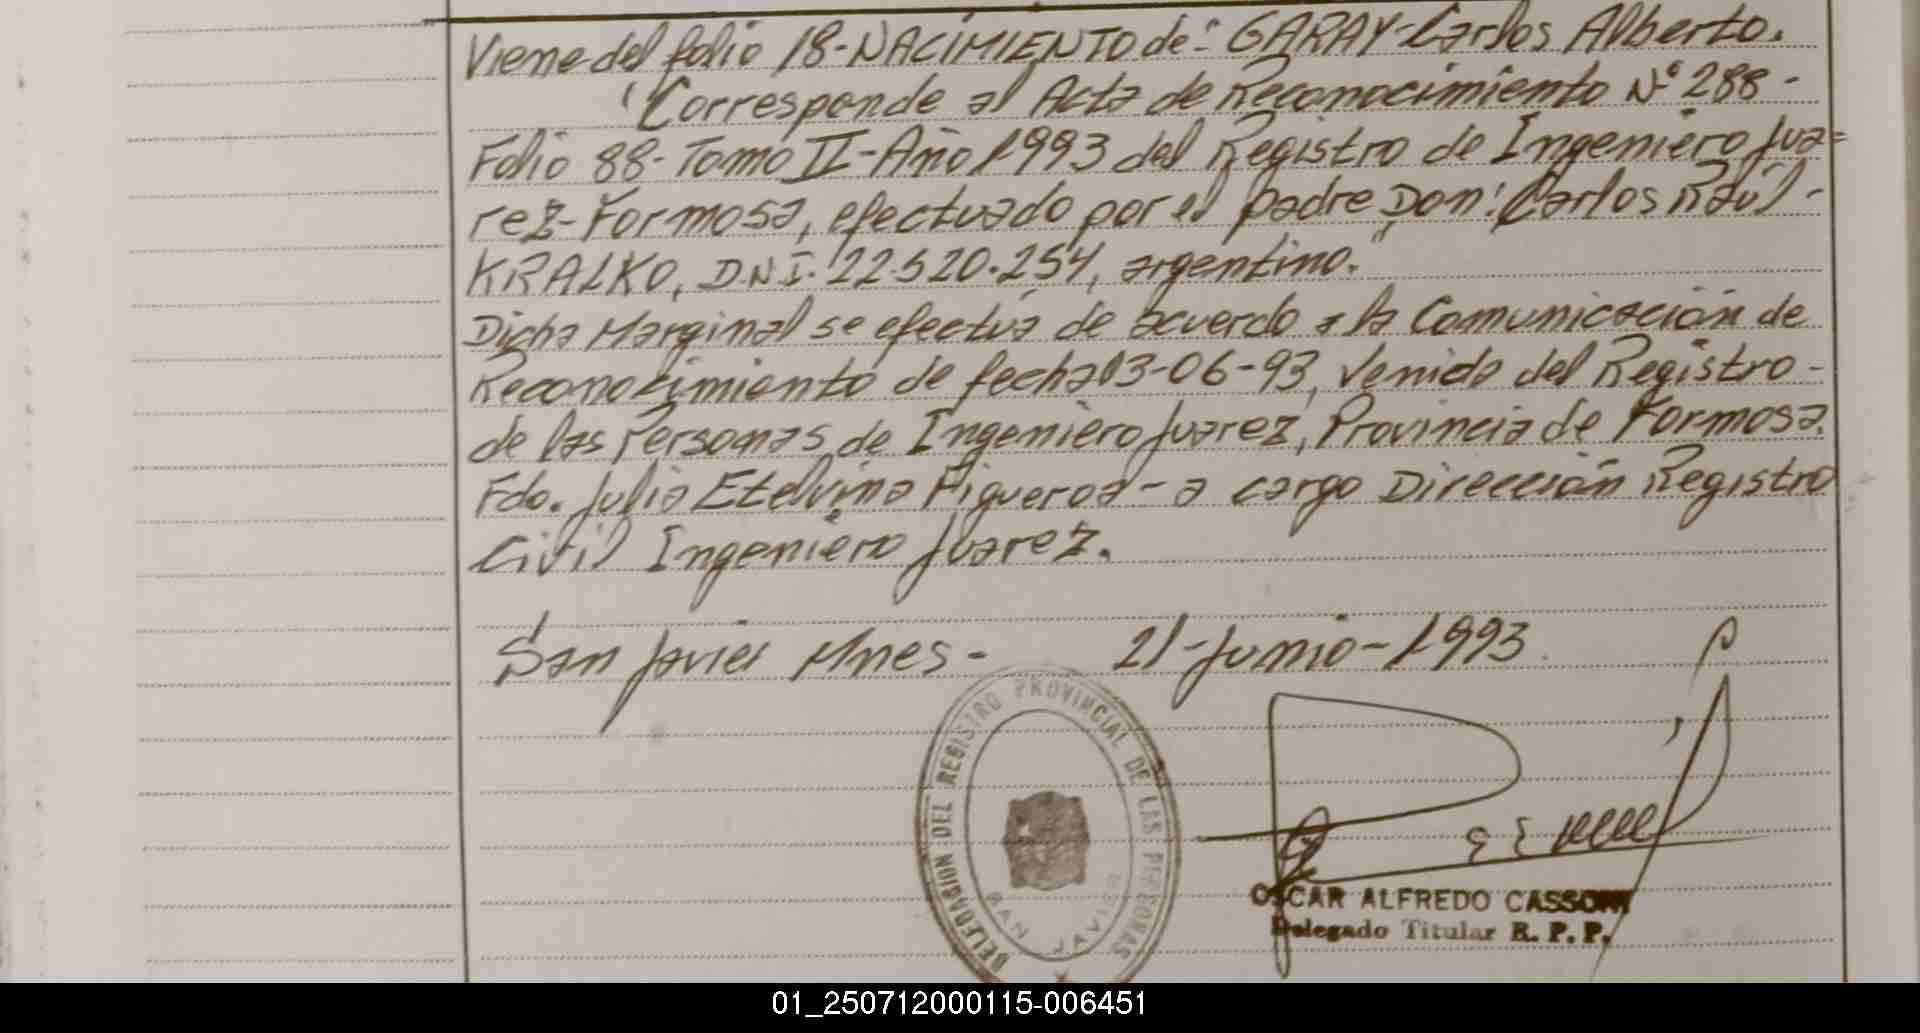 Viene del folio 18-NACIMIENTO de: GARAY-Carlos Alberto.
Corresponde al Acta de Reconocimiento Nº 288-
Folio 88-Tomo II-Año 1993 del Registro de Ingeniero Jua=
rez-Formosa, efectuado por el padre Don: Carlos Raúl-
KRALKO, D.N.I. 22.520.254, argentino.
Dicha Marginal se efectua de acuerdo a la Comunicación de
Reconocimiento de fecha 03-06-93, venida del Registro-
de las Personas de Ingeniero Juarez, Provincia de Formosa.
Fdo. Julia Etelvina Figueroa-a cargo Dirección Registro
Civil Ingeniero Juarez.
San Javier Mnes- 21-Junio-1993.
DELEGACION DEL REGISTRO PROVINCIAL DE LAS PERSONAS
SAN JAVIER
OSCAR ALFREDO CASSONI
Delegado Titular R. P. P.
01_250712000115-006451